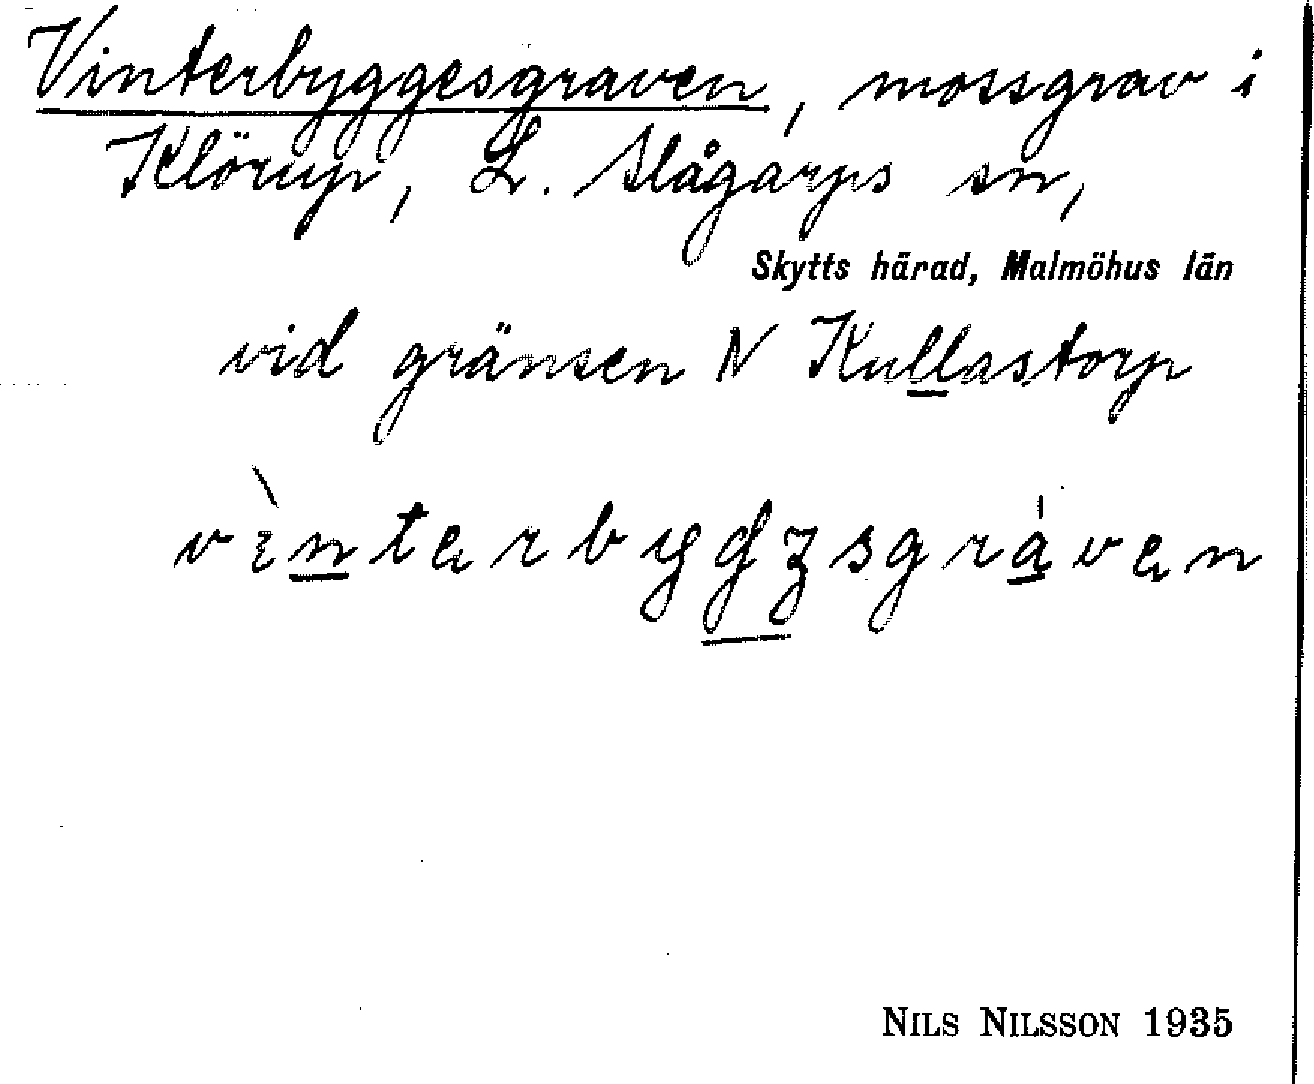 Vinterbyggesgraven, mossgrav i
Klörup, L. Slågarps sn,
Skytts härad, Malmöhus län
vid gränsen N Kullastorp
NILS NILSSON 1935